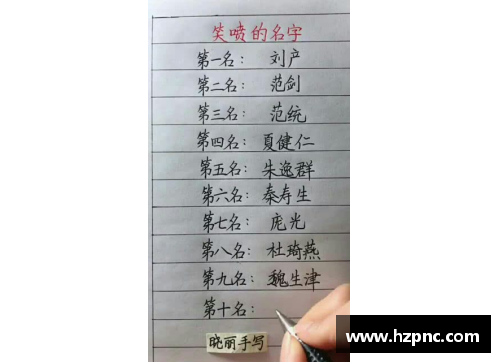 笑喷的名字
第一名： 刘产
第二名： 范剑
第三名： 范统
第四名：夏健仁
第五名：朱逸群
第六名：秦寿生
第七名： 庞光
第八名：杜琦燕
第九名：魏生津
第十名：
晓丽手写
www.hzpnc.com